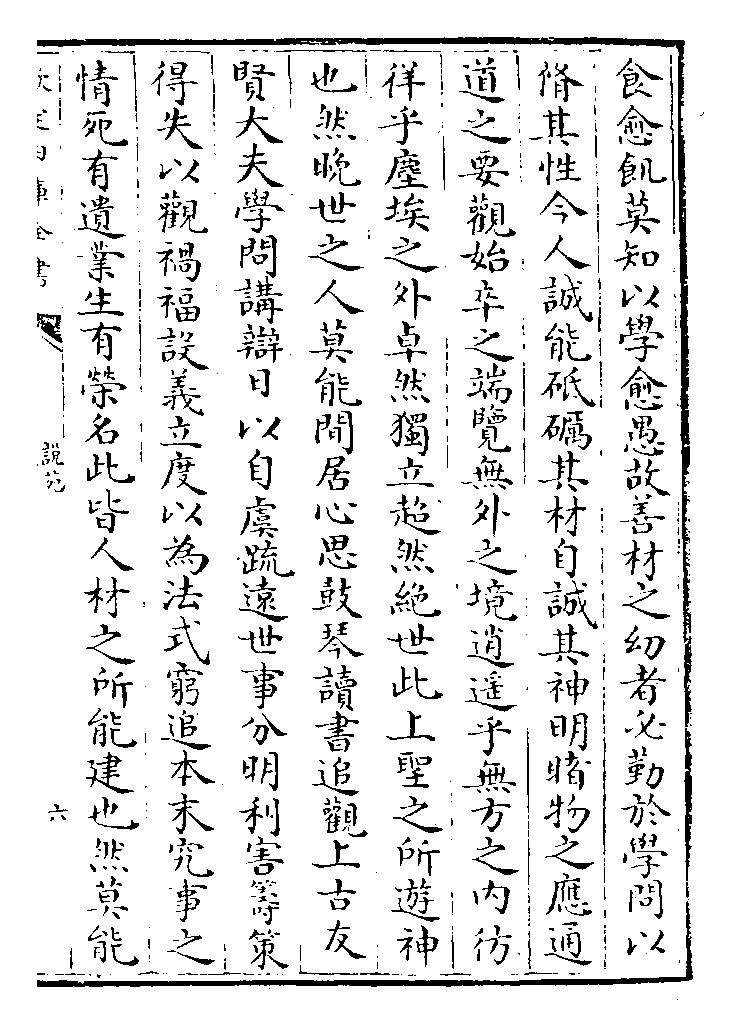 食愈飢莫知以學愈愚故善材之幼者必勤於學問以
脩其性今人誠能砥礪其材自誠其神明睹物之應通
道之要觀始卒之端覽無外之境逍遙乎無方之内彷
徉乎塵埃之外卓然獨立超然絶世此上聖之所遊神
也然晚世之人莫能閒居心思鼓琴讀書追觀上古友
賢大夫學問講辯日以自虞疏遠世事分明利害籌策
得失以觀禍福設義立度以為法式窮追本末究事之
情死有遺業生有榮名此皆人材之所能建也然莫能
欽定四庫全書
說苑
六